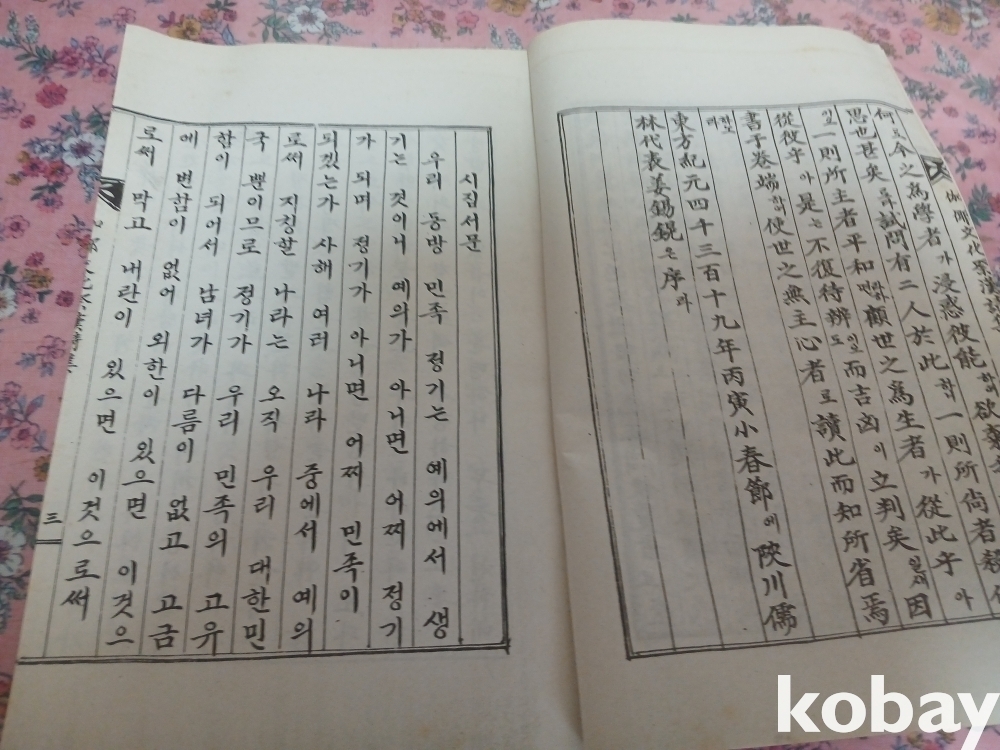 何오今之為學者가浸惑彼能합欲
思也甚矣試問有二人於此합一則所尚者
一則所主者平和면觀世之為生者가從此乎아
從彼乎아是는不復待辨도而吉凶이立判矣일새因
書于卷端합使世之無主心者로讀此而知所省焉
하노라
東方紀元四千三百十九年丙寅小春節에陝川儒
林代表姜錫銳은序라
시집서문
우리 동방 민족 정기는 예의에서 생
기는 것이니 예의가 아니면 어찌 정기
가 되며 정기가 아니면 어찌 민족이
되겠는가 사해 여러 나라 중에서 예의
로써 지칭할 나라는 오직 우리 대한민
국 뿐이므로 정기가 우리 민족의 고유
함이 되어서 남녀가 다름이 없고 고금
에 변함이 없어 외한이 있으면 이것으
로써 막고 내란이 있으면 이것으로써
三
kobay